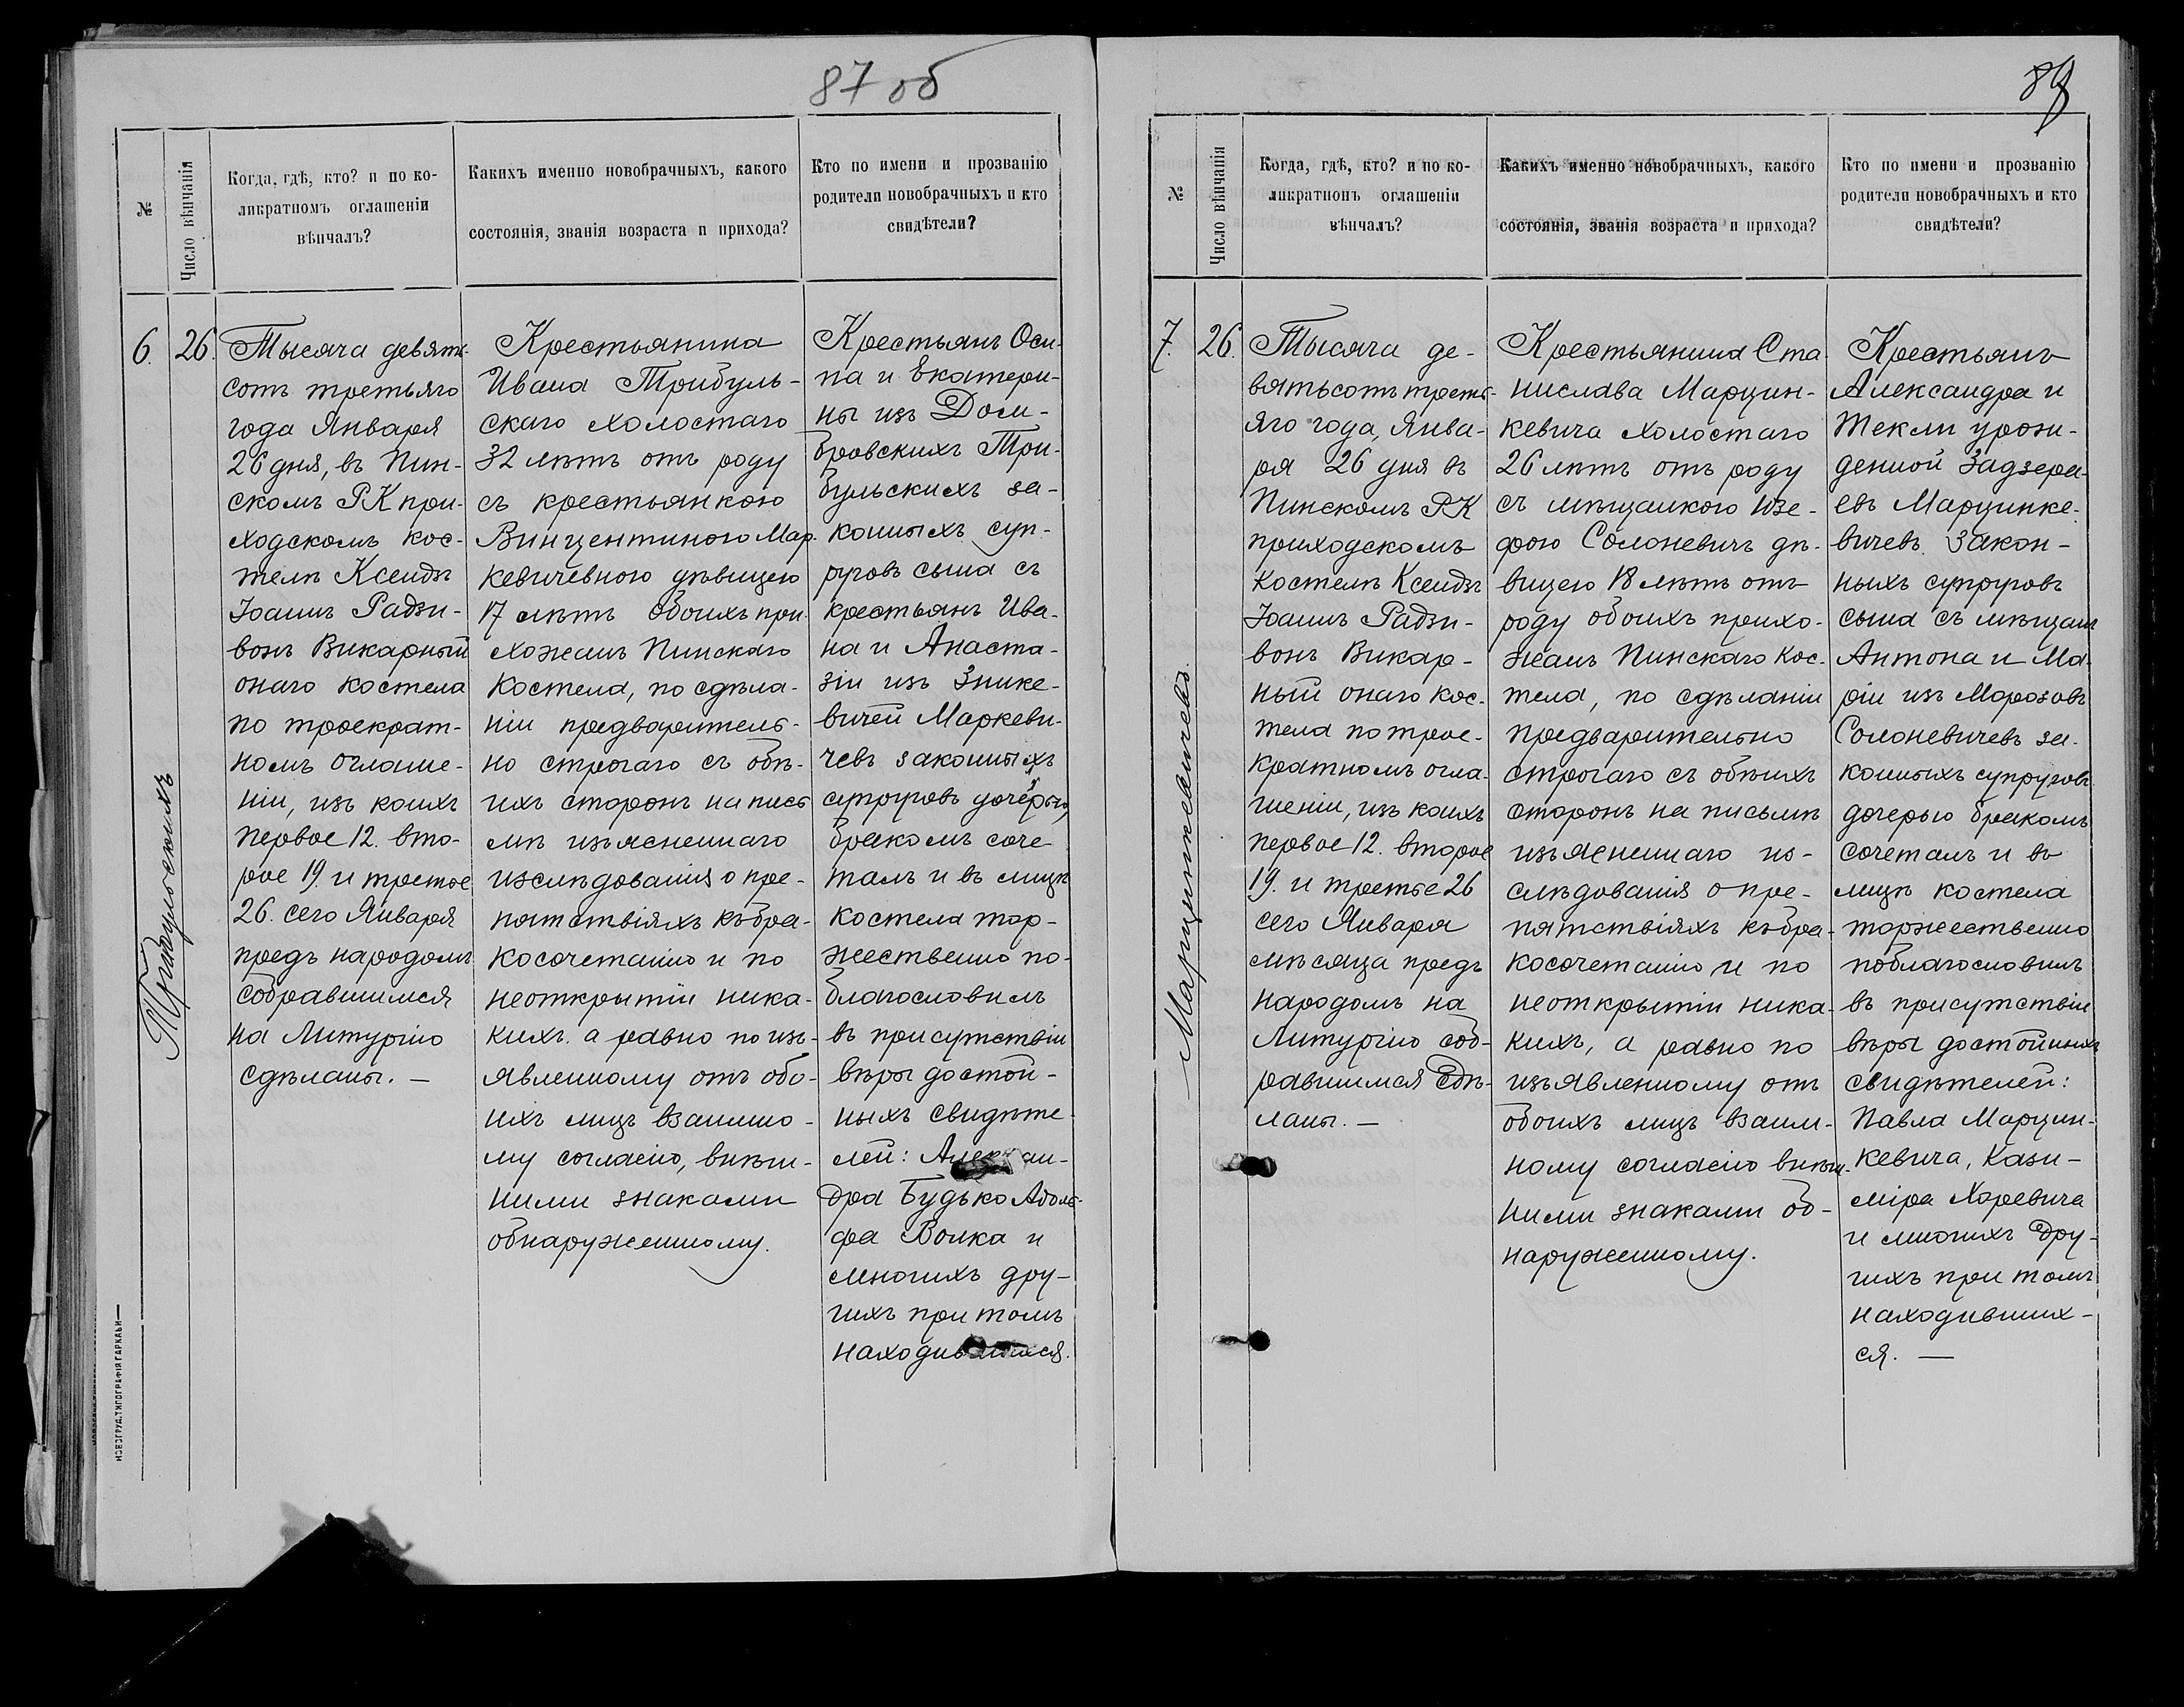 87 об
№
Число вѣнчанія
Когда, гдѣ, кто? и по ко-
ликратномъ оглашеніи
вѣнчалъ?
Какихъ именно новобрачныхъ, какого
состоянія, званія возраста и прихода?
Кто по имени и прозванію
родители новобрачныхъ и кто
свидѣтели?
6.
26.
Трибульскихъ
Тысяча девять-
сотъ третьяго
года Января
26 дня, въ Пин-
скомъ РК при-
ходскомъ кос-
телѣ Ксендзъ
Іоаннъ Радзи-
вонъ Викарный
онаго костела
по троекрат-
номъ оглаше-
ніи, изъ коихъ
первое 12. вто-
рое 19. и третье
26. сего Января
предъ народомъ
собравшимся
на Литургію
сдѣланы. —
Крестьянина
Ивана Трибуль-
скаго холостаго
32 лѣтъ отъ роду
съ крестьянкою
Винцентиною Мар-
кевичевною дѣвицею
17 лѣтъ обоихъ при-
хожанъ Пинскаго
костела, по сдѣла-
ніи предваритель-
но строгаго съ обѣ-
ихъ сторонъ на пись
мѣ изъясненнаго
изслѣдованія о пре-
пятствіяхъ къ бра-
косочетанію и по
неоткрытіи ника-
кихъ. а равно по изъ-
явленному отъ обо-
ихъ лицъ взаимно-
му согласію, внѣш-
ними знаками
обнаруженному.
Крестьянъ Оси-
па и Екатери-
ны изъ Дом-
бровскихъ Три-
бульскихъ за-
конныхъ суп-
руговъ сына съ
крестьянъ Ива-
на и Анаста-
зіи изъ Зинке-
вичей Маркеви-
чевъ законныхъ
супруговъ дочерью,
бракомъ соче-
талъ и въ лицѣ
костела тор-
жественно по-
благословилъ
въ присутствіи
вѣры достой-
ныхъ свидѣте-
лей: Алексан-
дра Будько Адоль-
фа Волка и
многихъ дру-
гихъ при томъ
находившихся.
НОВОГРУД. ТИПОГРАФІЯ ГАРКАВИ
№
Число вѣнчанія
Когда, гдѣ, кто? и по ко-
ликратномъ оглашеніи
вѣнчалъ?
Какихъ именно новобрачныхъ, какого
состоянія, званія возраста и прихода?
Кто по имени и прозванію
родители новобрачныхъ и кто
свидѣтели?
7.
26.
Марцинкевичевъ.
Тысяча де-
вятьсотъ треть-
яго года, Янва-
ря 26 дня въ
Пинскомъ РК
приходскомъ
костелѣ Ксендзъ
Іоаннъ Радзи-
вонъ Викар-
ный онаго кос-
тела по трое-
кратномъ огла-
шеніи, изъ коихъ
первое 12. второе
19. и третье 26
сего Января
мѣсяца предъ
народомъ на
Литургію соб-
равшимся сдѣ-
ланы. —
Крестьянина Ста-
нислава Марцин-
кевича холостаго
26 лѣтъ отъ роду
съ мѣщанкою Юзе-
фою Солоневичъ дѣ-
вицею 18 лѣтъ отъ
роду обоихъ прихо-
жанъ Пинскаго кос-
тела, по сдѣланіи
предварительно
строгаго съ обѣихъ
сторонъ на письмѣ
изъясненнаго из-
слѣдованія о пре-
пятствіяхъ къ бра-
косочетанію и по
неоткрытіи ника-
кихъ, а равно по
изъявленному отъ
обоихъ лицъ взаим-
ному согласію внѣш-
ними знаками об-
наруженному.
Крестьянъ
Александра и
Текли урож-
денной Задзера-
евъ Марцинке-
вичевъ закон-
ныхъ супруговъ
сына съ мѣщанъ
Антона и Ма-
ріи изъ Морозовъ
Солоневичевъ за-
конныхъ супруговъ
дочерью бракомъ
сочеталъ и въ
лицѣ костела
торжественно
поблагословилъ
въ присутствіи
вѣры достойныхъ
свидѣтелей:
Павла Марцин-
кевича, Кази-
міра Харевича
и многихъ дру-
гихъ при томъ
находивших-
ся. —